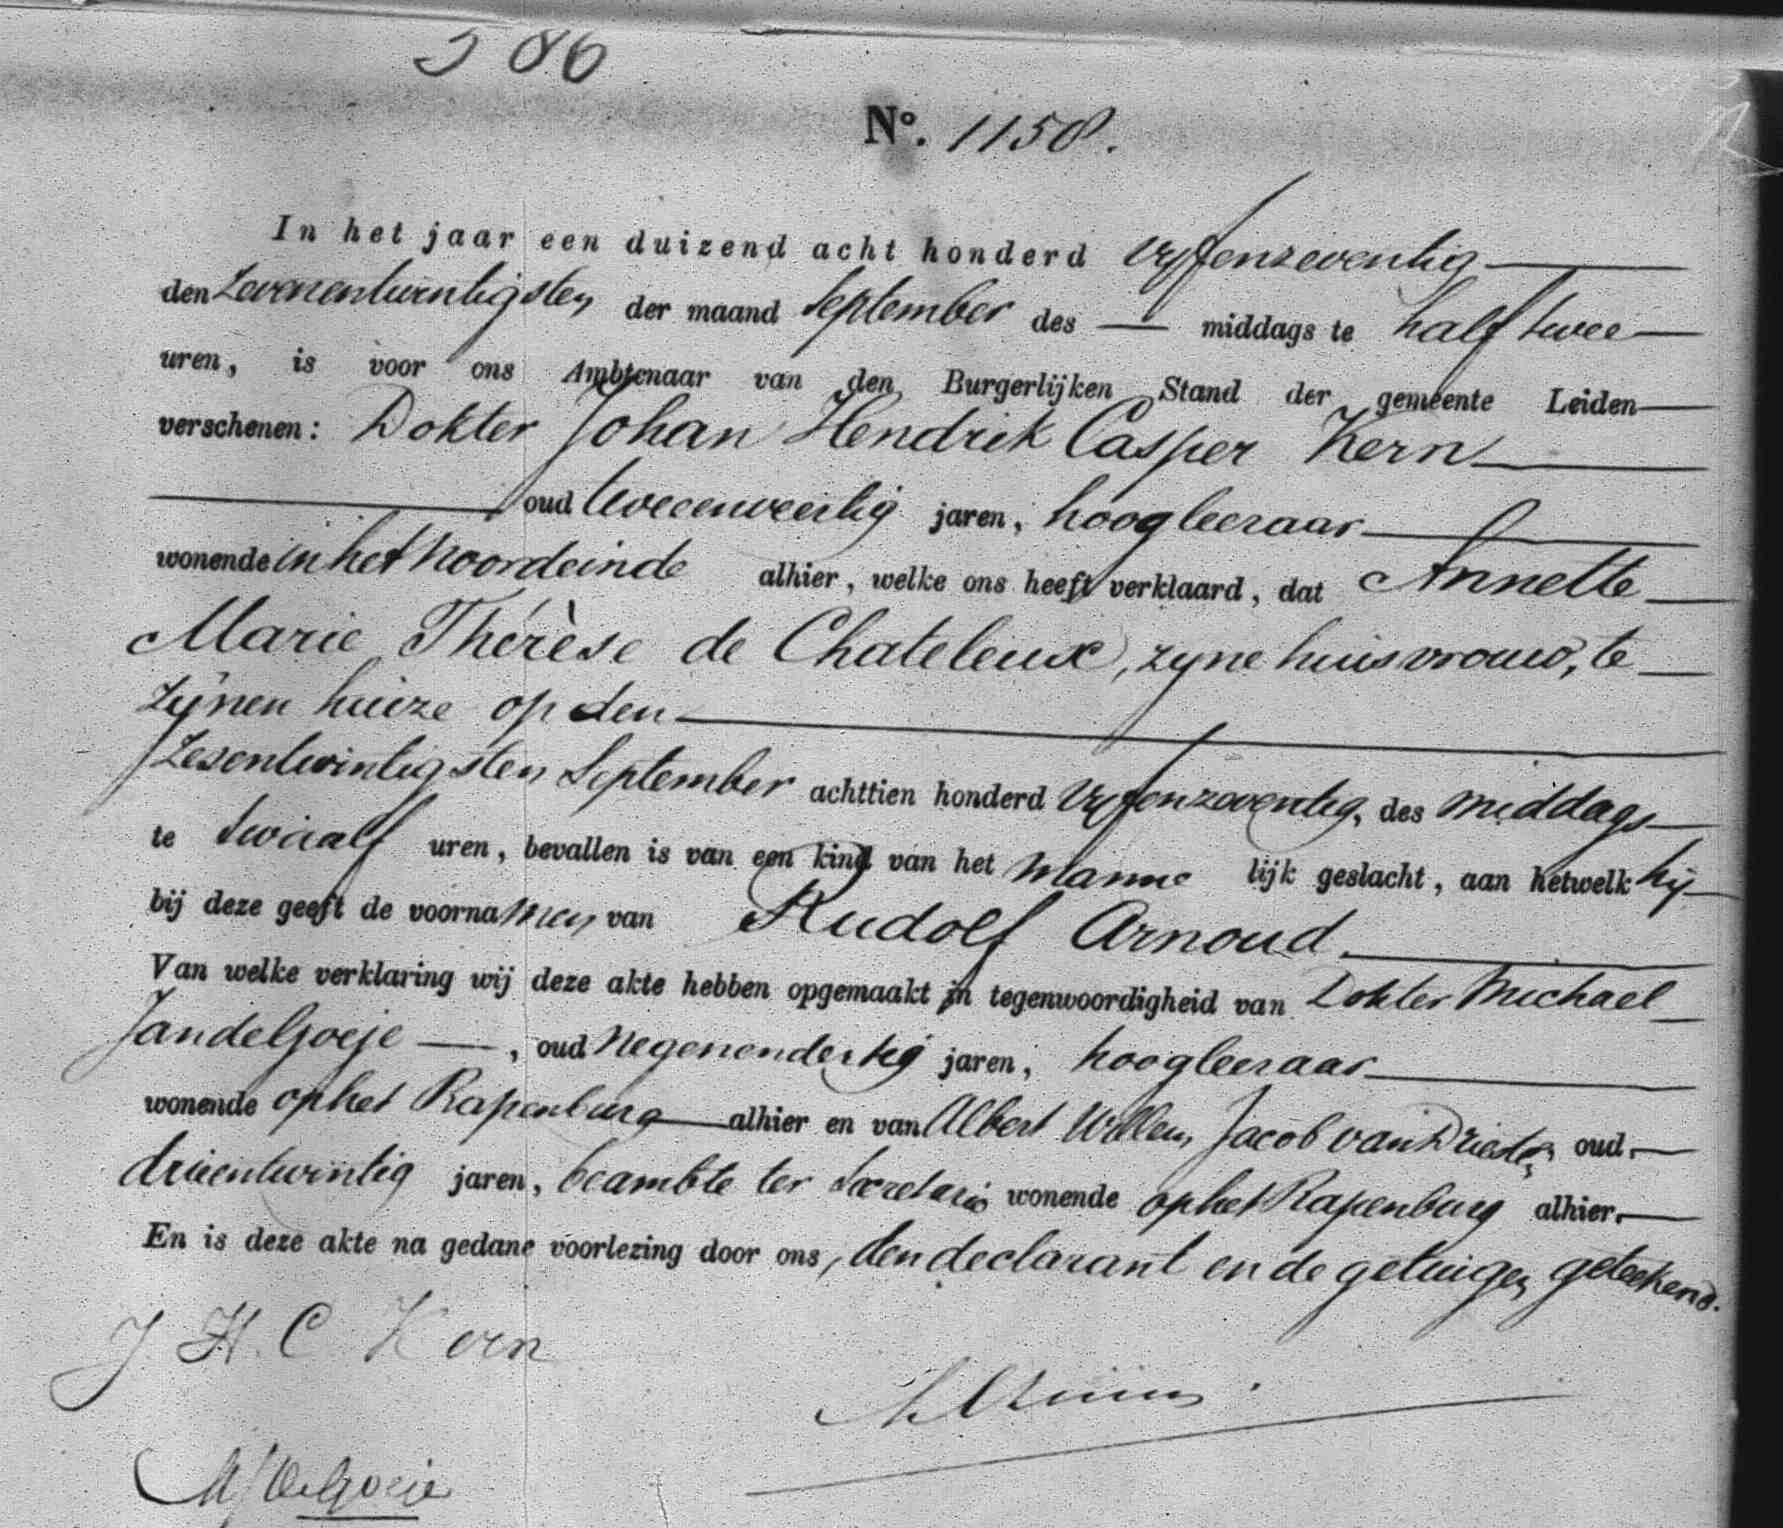 586
No. 1158.
In het jaar een duizend acht honderd vyfenzeventig
den zevenentwintigsten der maand September des — middags te half twee
uren, is voor ons Ambtenaar van den Burgerlijken Stand der gemeente Leiden
verschenen: Dokter Johan Hendrik Casper Kern
oud tweeenveertig jaren, hoogleeraar
wonende in het Noordeinde alhier, welke ons heeft verklaard, dat Annette
Marie Thérèse de Chateleux, zyne huisvrouw, te
zijnen huize op den
zesentwintigsten September achttien honderd vyfenzeventig, des middags
te twaalf uren, bevallen is van een kind van het manne lijk geslacht, aan hetwelk hij
bij deze geeft de voornamen van Rudolf Arnoud
Van welke verklaring wij deze akte hebben opgemaakt in tegenwoordigheid van Dokter Michael
Jan de Goeje —, oud negenendertig jaren, hoogleeraar
wonende op het Rapenburg alhier en van Albert Willem Jacob van Driesten oud
drieentwintig jaren, beambte ter Secretarie wonende op het Rapenburg alhier.
En is deze akte na gedane voorlezing door ons, den declarant en de getuigen geteekend.
J H. C Kern
M J de Goeje